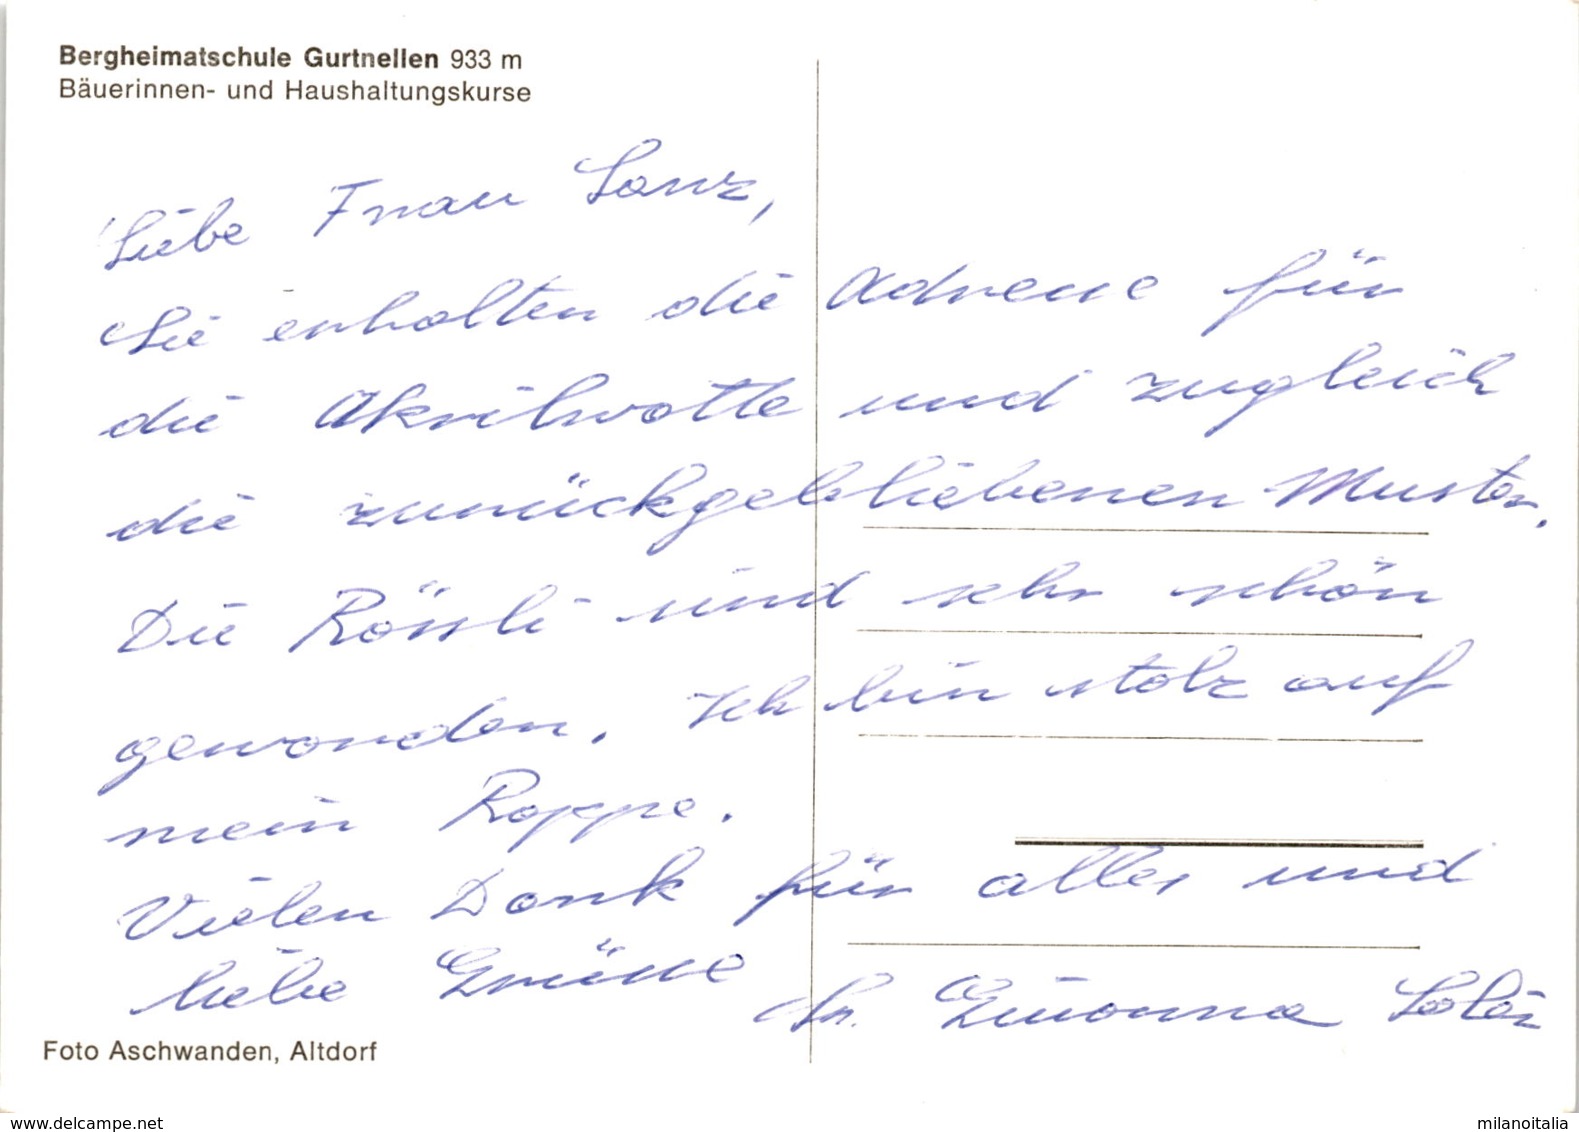 Bergheimatschule Gurtnellen 933 m
Bäuerinnen- und Haushaltungskurse
Liebe Frau Lanz,
Sie erhalten die Adresse für
die Akrilwatte und zugleich
die zurückgebliebenen Muster.
Die Rössli sind sehr schön
geworden. Ich bin stolz auf
mein Rappe.
Vielen Dank für alles und
liebe Grüsse
Sr.
Foto Aschwanden, Altdorf
www.delcampe.net
milanoitalia